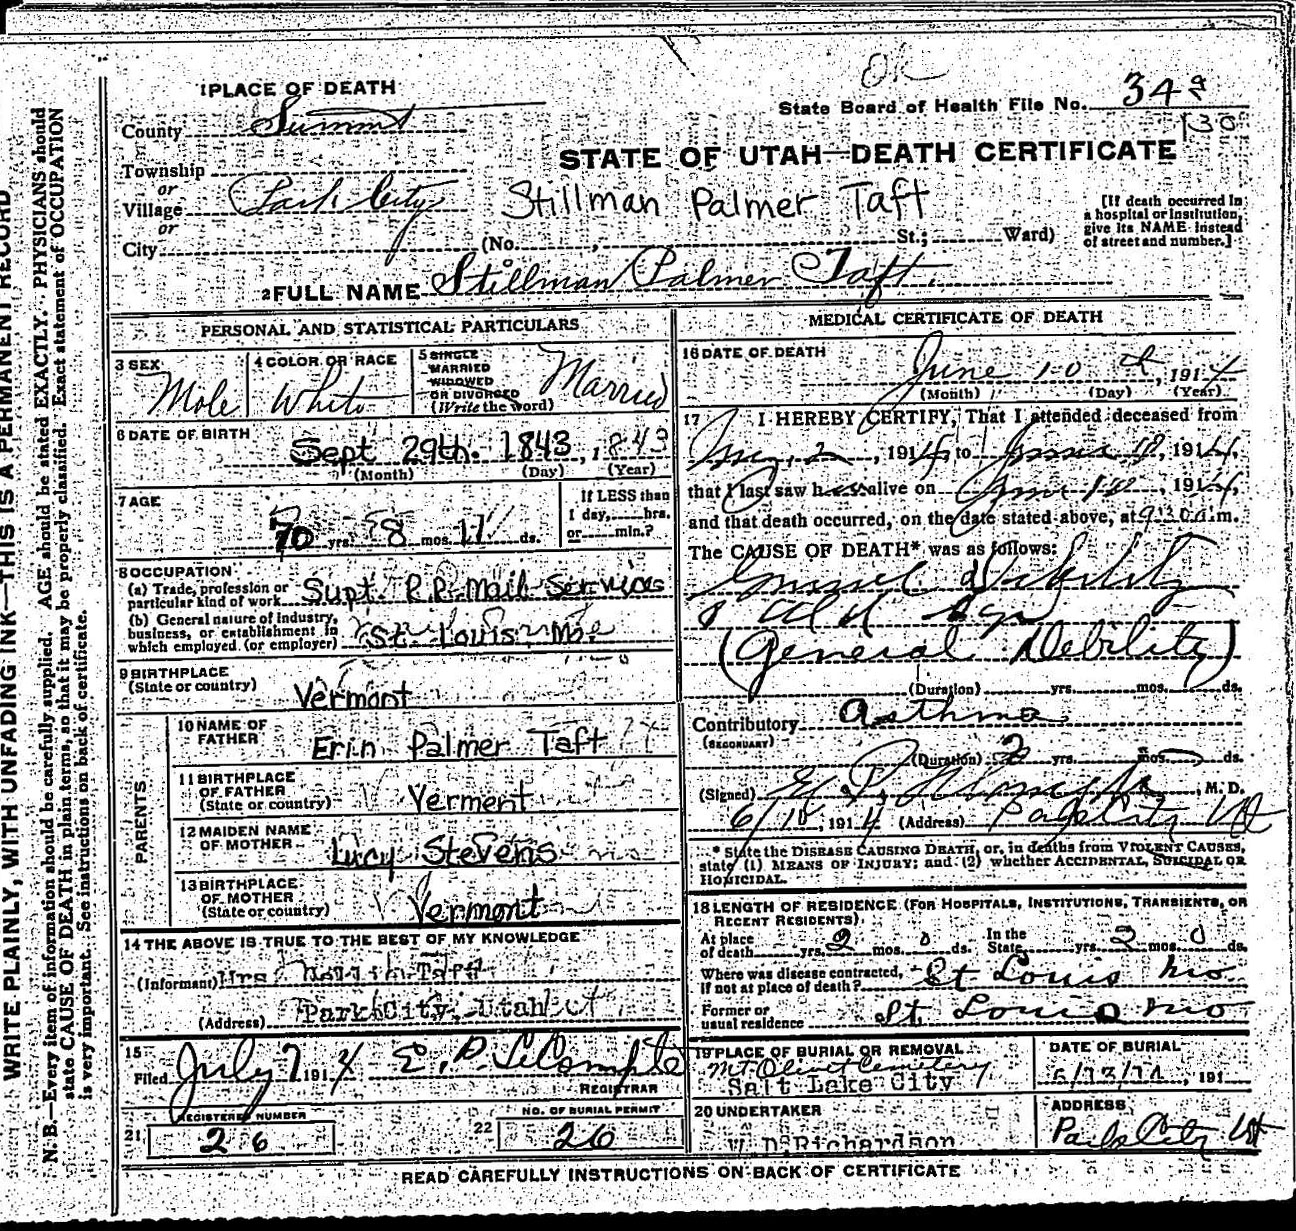 OK
1 PLACE OF DEATH
State Board of Health File No. 34
130
County Summit
STATE OF UTAH—DEATH CERTIFICATE
Township
or
Village Park City
Stillman Palmer Taft
[If death occurred in
a hospital or institution,
give its NAME instead
of street and number.]
or
City (No. , St.; Ward)
2 FULL NAME Stillman Palmer Taft
PERSONAL AND STATISTICAL PARTICULARS
3 SEX
Male
4 COLOR OR RACE
White
5 SINGLE
MARRIED
WIDOWED
OR DIVORCED
(Write the word)
Married
6 DATE OF BIRTH
Sept 29th. 1843, 1843
(Month) (Day) (Year)
7 AGE
70 yrs. 8 mos. 11 ds.
If LESS than
1 day, hrs.
or min.?
8 OCCUPATION
(a) Trade, profession or
particular kind of work Supt. R.R. Mail Service
(b) General nature of industry,
business, or establishment in
which employed (or employer) St. Louis, Mo.
9 BIRTHPLACE
(State or country) Vermont
PARENTS
10 NAME OF
FATHER Erin Palmer Taft
11 BIRTHPLACE
OF FATHER
(State or country) Vermont
12 MAIDEN NAME
OF MOTHER Lucy Stevens
13 BIRTHPLACE
OF MOTHER
(State or country) Vermont
14 THE ABOVE IS TRUE TO THE BEST OF MY KNOWLEDGE
(Informant) Mrs Taft
(Address) Park City, Utah
15
Filed July 7 1914 E. P. LeCompte
REGISTRAR
REGISTERED NUMBER
21 26
NO. OF BURIAL PERMIT
22 26
MEDICAL CERTIFICATE OF DEATH
16 DATE OF DEATH
June 10th, 1914
(Month) (Day) (Year)
17 I HEREBY CERTIFY, That I attended deceased from
, 1914, to June 10, 1914,
that I last saw h alive on June 10, 1914,
and that death occurred, on the date stated above, at 9:30 a.m.
The CAUSE OF DEATH* was as follows:
General Debility
Old Age
(General Debility)
(Duration) yrs. mos. ds.
Contributory Asthma
(SECONDARY)
(Duration) 2 yrs. mos. ds.
(Signed) , M. D.
6/10, 1914 (Address) Park City Ut
* State the DISEASE CAUSING DEATH, or, in deaths from VIOLENT CAUSES,
state (1) MEANS OF INJURY; and (2) whether ACCIDENTAL, SUICIDAL OR
HOMICIDAL.
18 LENGTH OF RESIDENCE (FOR HOSPITALS, INSTITUTIONS, TRANSIENTS, OR
RECENT RESIDENTS)
At place
of death yrs. 2 mos. 0 ds. In the
State yrs. 2 mos. 0 ds.
Where was disease contracted,
If not at place of death? St Louis Mo
Former or
usual residence St. Louis Mo
19 PLACE OF BURIAL OR REMOVAL
Mt Olivet Cemetery
Salt Lake City
DATE OF BURIAL
6/13/14, 191
20 UNDERTAKER
W D Richardson
ADDRESS
Park City Ut
READ CAREFULLY INSTRUCTIONS ON BACK OF CERTIFICATE
WRITE PLAINLY, WITH UNFADING INK—THIS IS A PERMANENT RECORD
N. B.—Every item of information should be carefully supplied. AGE should be stated EXACTLY. PHYSICIANS should
state CAUSE OF DEATH in plain terms, so that it may be properly classified. Exact statement of OCCUPATION
is very important. See instructions on back of certificate.